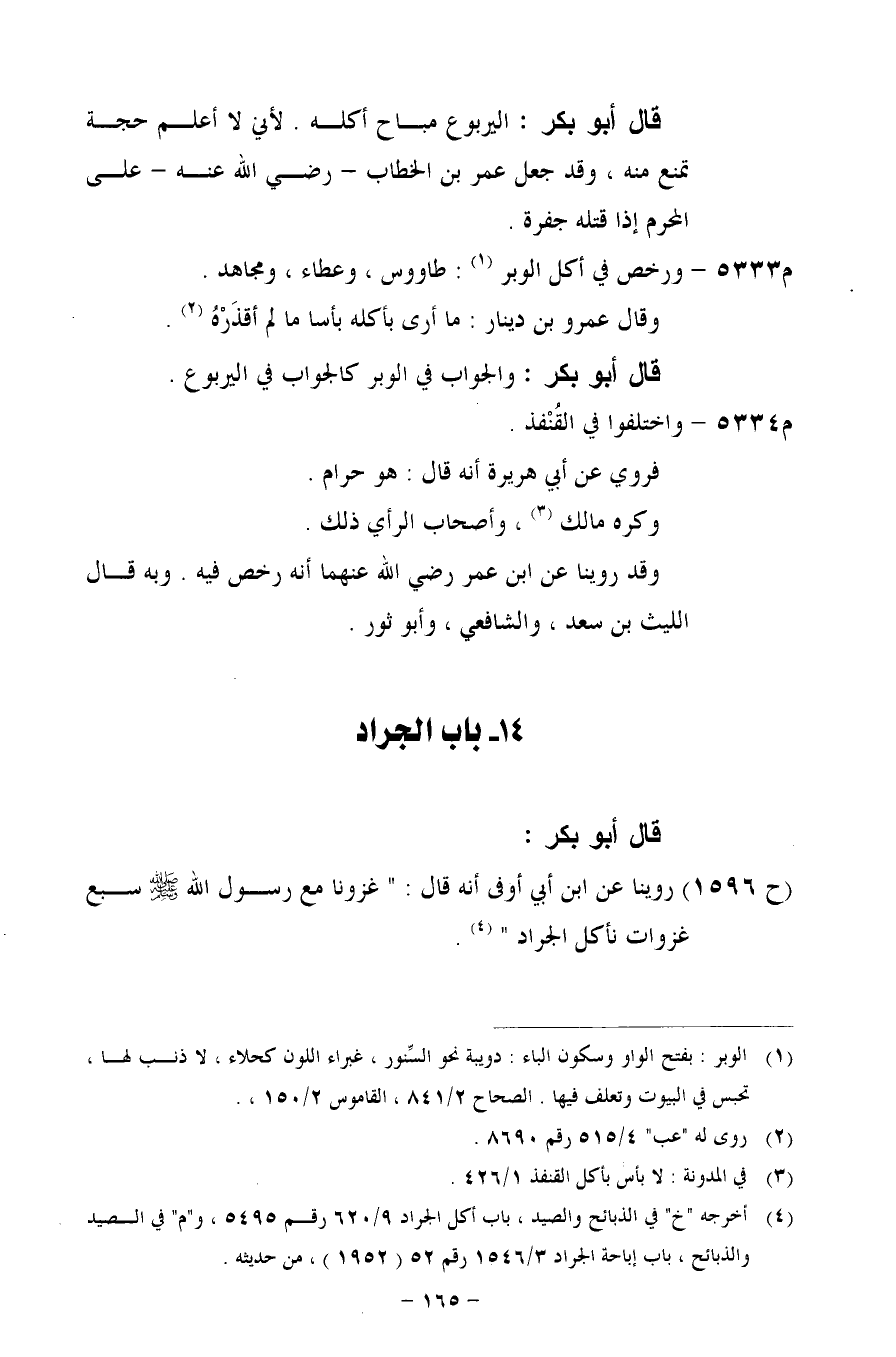 قال أبو بكر : اليربوع مباح أكله . لأني لا أعلم حجة
تمنع منه ، وقد جعل عمر بن الخطاب – رضي الله عنه – على
المحرم إذا قتله جفرة .
م٥٣٣٣ – ورخص في أكل الوبر (١) : طاووس ، وعطاء ، ومجاهد .
وقال عمرو بن دينار : ما أرى بأكله بأسا ما لم أقذَرْهُ (٢) .
قال أبو بكر : والجواب في الوبر كالجواب في اليربوع .
م٥٣٣٤ – واختلفوا في القُنْفذ .
فروي عن أبي هريرة أنه قال : هو حرام .
وكره مالك (٣) ، وأصحاب الرأي ذلك .
وقد روينا عن ابن عمر رضي الله عنهما أنه رخص فيه . وبه قال
الليث بن سعد ، والشافعي ، وأبو ثور .
١٤ـ باب الجراد
قال أبو بكر :
(ح ١٥٩٦) روينا عن ابن أبي أوفى أنه قال : " غزونا مع رسول الله ﷺ سبع
غزوات نأكل الجراد " (٤) .
(١) الوبر : بفتح الواو وسكون الباء : دويبة نحو السِّنور ، غبراء اللون كحلاء ، لا ذنب لها ،
تحبس في البيوت وتعلف فيها . الصحاح ٨٤١/٢ ، القاموس ١٥٠/٢ ، .
(٢) روى له "عب" ٥١٥/٤ رقم ٨٦٩٠ .
(٣) في المدونة : لا بأس بأكل القنفذ ٤٢٦/١ .
(٤) أخرجه "خ" في الذبائح والصيد ، باب أكل الجراد ٦٢٠/٩ رقم ٥٤٩٥ ، و"م" في الصيد
والذبائح ، باب إباحة الجراد ١٥٤٦/٣ رقم ٥٢ ( ١٩٥٢ ) ، من حديثه .
– ١٦٥ –